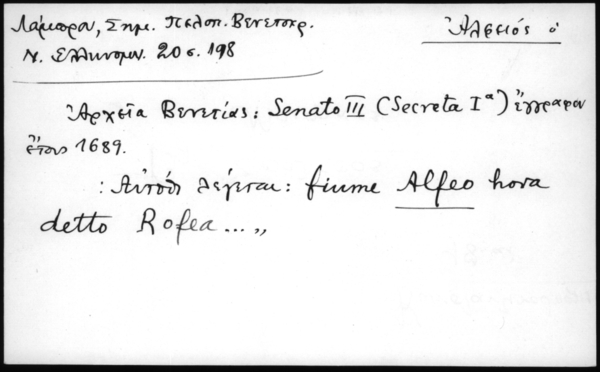 Λάμπρου, Σημ. Πελοπ. Βενετοκρ.
Ἀλφειός ὁ
Ν. Ἑλληνομν. 20 σ. 198
Ἀρχεῖα Βενετίας: Senato III (Secreta Iª) ἔγγραφον
ἔτους 1689.
: Αὐτόθι λέγεται: fiume Alfeo hora
detto Rofea ... „